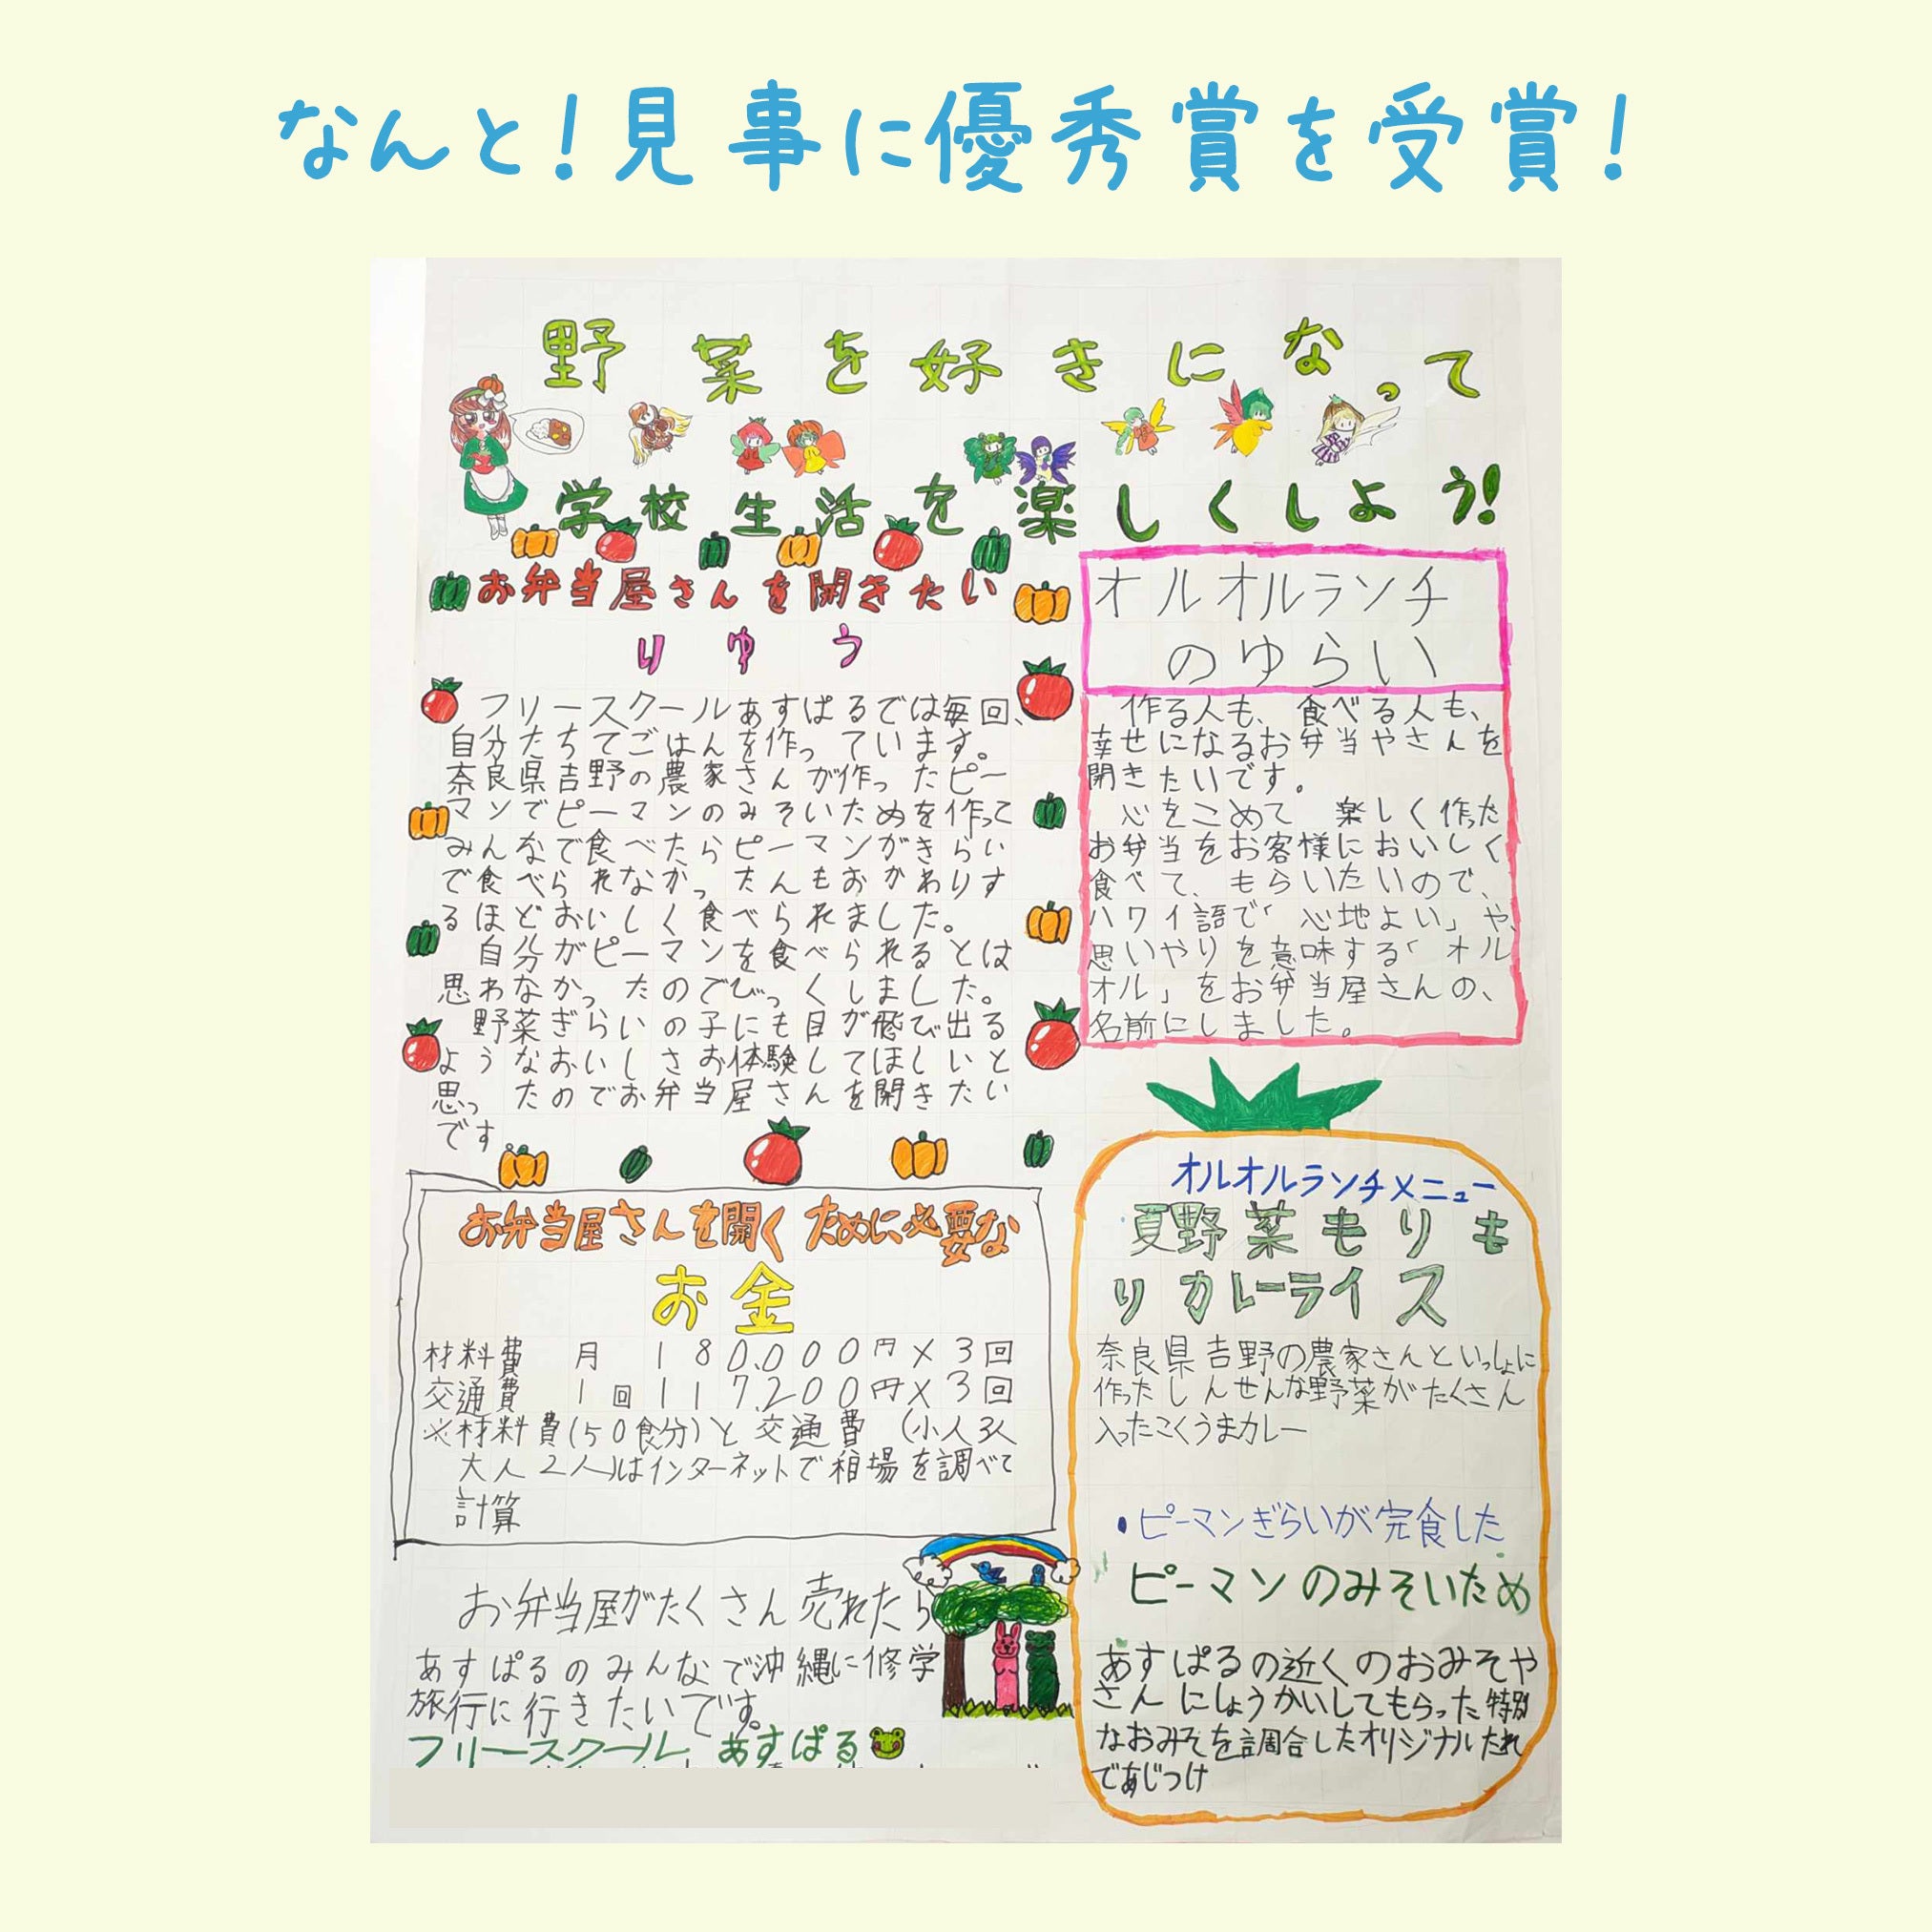 なんと!見事に優秀賞を受賞!
野菜を好きになって
学校生活を楽しくしよう!
お弁当屋さんを開きたい
りゆう
フリースクールあすぱるでは毎回、
自分たちでごはんを作っています。
奈良県吉野の農家さんが作ったピー
マンでピーマンのみそいためを作って
みんなで食べたらピーマンがきらい
で食べられなかったんもおかわりす
るほどおいしく食べられました。
自分がピーマンを食べられるとは
思わなかったのでびっくしました。
野菜ぎらいの子にも目が飛び出る
ようなおいしさお体験してほしいと
思ったのでお弁当屋さんを開きたい
です
オルオルランチ
のゆらい
作る人も、食べる人も、
幸せになるお弁当やさんを
開きたいです。
心をこめて 楽しく作った
お弁当をお客様においしく
食べて、もらいたいので、
ハワイ語で「心地よい」や、
思いやりを意味する「オル
オル」をお弁当屋さんの、
名前にしました。
お弁当屋さんを開くために必要な
お金
材料費 月 180.000円×3回
交通費 1回117.200円×3回
※材料費(50食分)と交通費(小人3人
大人2人)はインターネットで相場を調べて
計算
お弁当屋がたくさん売れたら
あすぱるのみんなで沖縄に修学
旅行に行きたいです。
フリースクール あすぱる
オルオルランチメニュー
夏野菜もりも
りカレーライス
奈良県吉野の農家さんといっしょに
作ったしんせんな野菜がたくさん
入ったこくうまカレー
・ピーマンぎらいが完食した
ピーマンのみそいため
あすぱるの近くのおみそや
さんにしょうかいしてもらった特別
なおみそを調合したオリジナルたれ
であじつけ